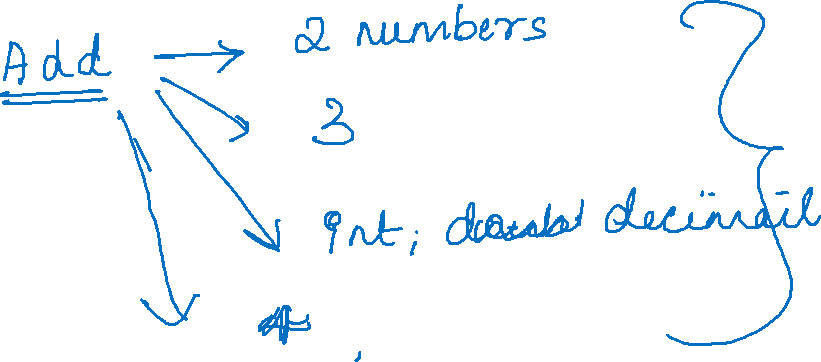 Add 2 numbers
3
int; decimail